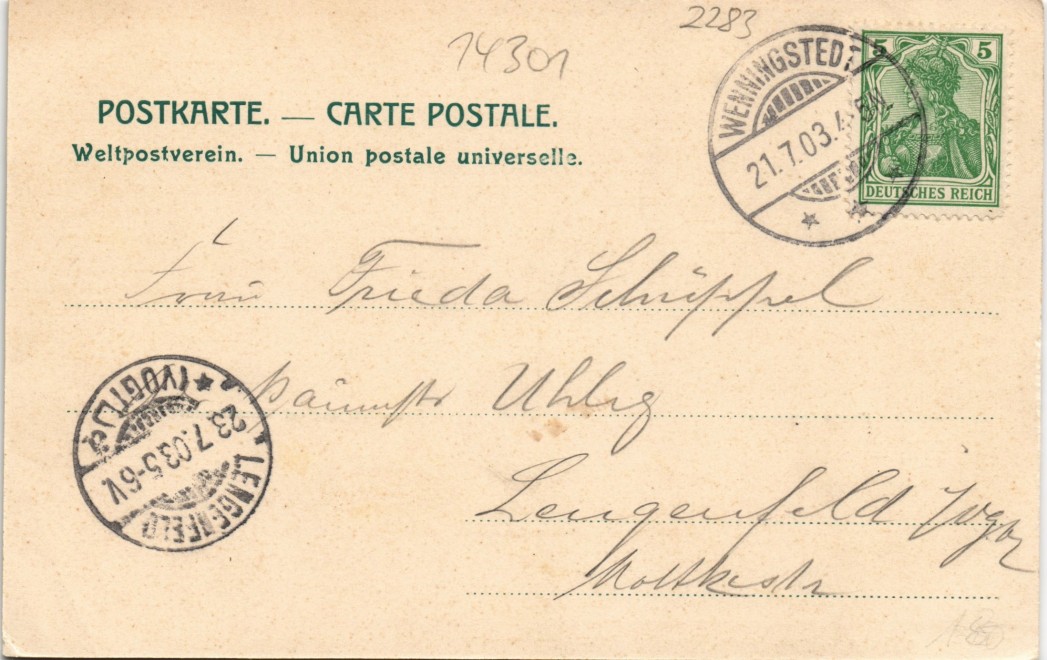 2283
14301
POSTKARTE. — CARTE POSTALE.
Weltpostverein. — Union postale universelle.
WENNINGSTEDT
21.7.03.
5 5
DEUTSCHES REICH
Frau Frieda Schüppel
Uhlig
Lengenfeld
Moltkestr
LENGENFELD
(VOGTLD)
23.7.03.5-6V.